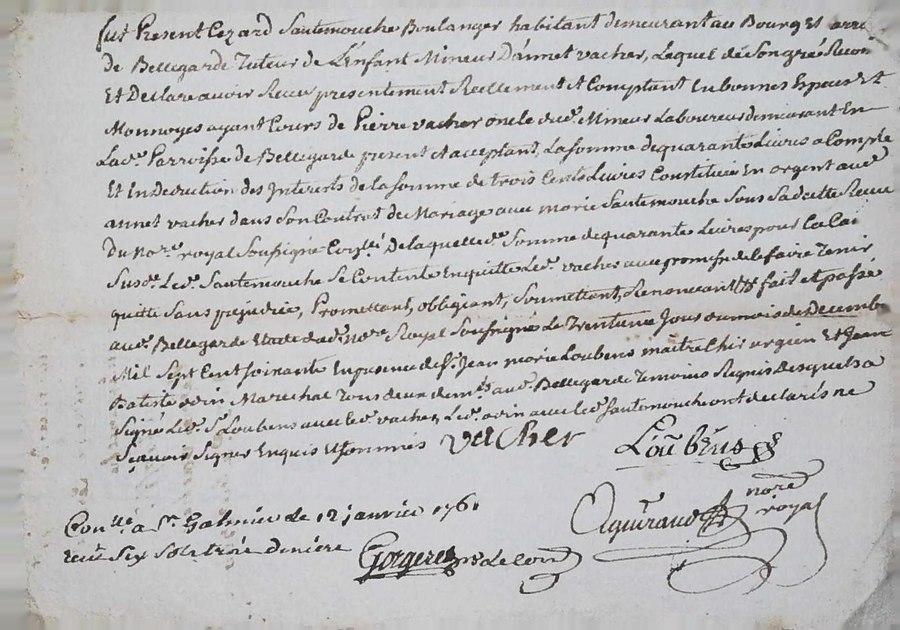 fut Present Cezard Sautemouche Boulanger habitant demeurant au Bourg Et
de Bellegarde Tuteur de L'Enfant Mineur D'annet vacher, Lequel de Son gré a Recon
Et Declare avoir Receu presentement Reellement et Comptant En bonnes Especes Et
Monnoyes ayant Cours de Pierre vacher oncle dud. Mineur Laboureur demeurant En
Lad. Parroisse de Bellegarde present et acceptant, La somme de quarante Livres a Compte
Et En Deduction des Interests de la somme de trois Cents Livres Constituée En argent aud.
annet vacher dans Son Contrat de Mariage avec marie Sautemouche Sous Sa datte Receu
Du No.re royal Soussigné De laquelle d. Somme de quarante Livres pour
Susd. Led. Sautemouche Se Contente En quitte Led. vacher avec promesse de le faire Tenir
quitte Sans prejudice, Promettant, obligeant, Soumettant, Renoncant &c fait et passé
aud. Bellegarde Etude dud. no.re Royal Soussigné Le Trente une Jour du mois de Decembre
Mil Sept Cent Soixante En presence de S.r Jean marie Loubens maitre Chirurgien Et Jean
Batiste ovin Marechal Tous deux dem.ts aud. Bellegarde Temoins Requis Desquels a
Signé Led. S. Loubens avec led. vacher, Led. ovin avec led. Sautemouche ont declarés ne
Sçavoir Signer Enquis Et Sommés vacher Loubens
Con.llé a S.t Galmier le 12 janvier 1761
receu Six Sols trois deniers
Gorgeret
Aguiraud no.re royal